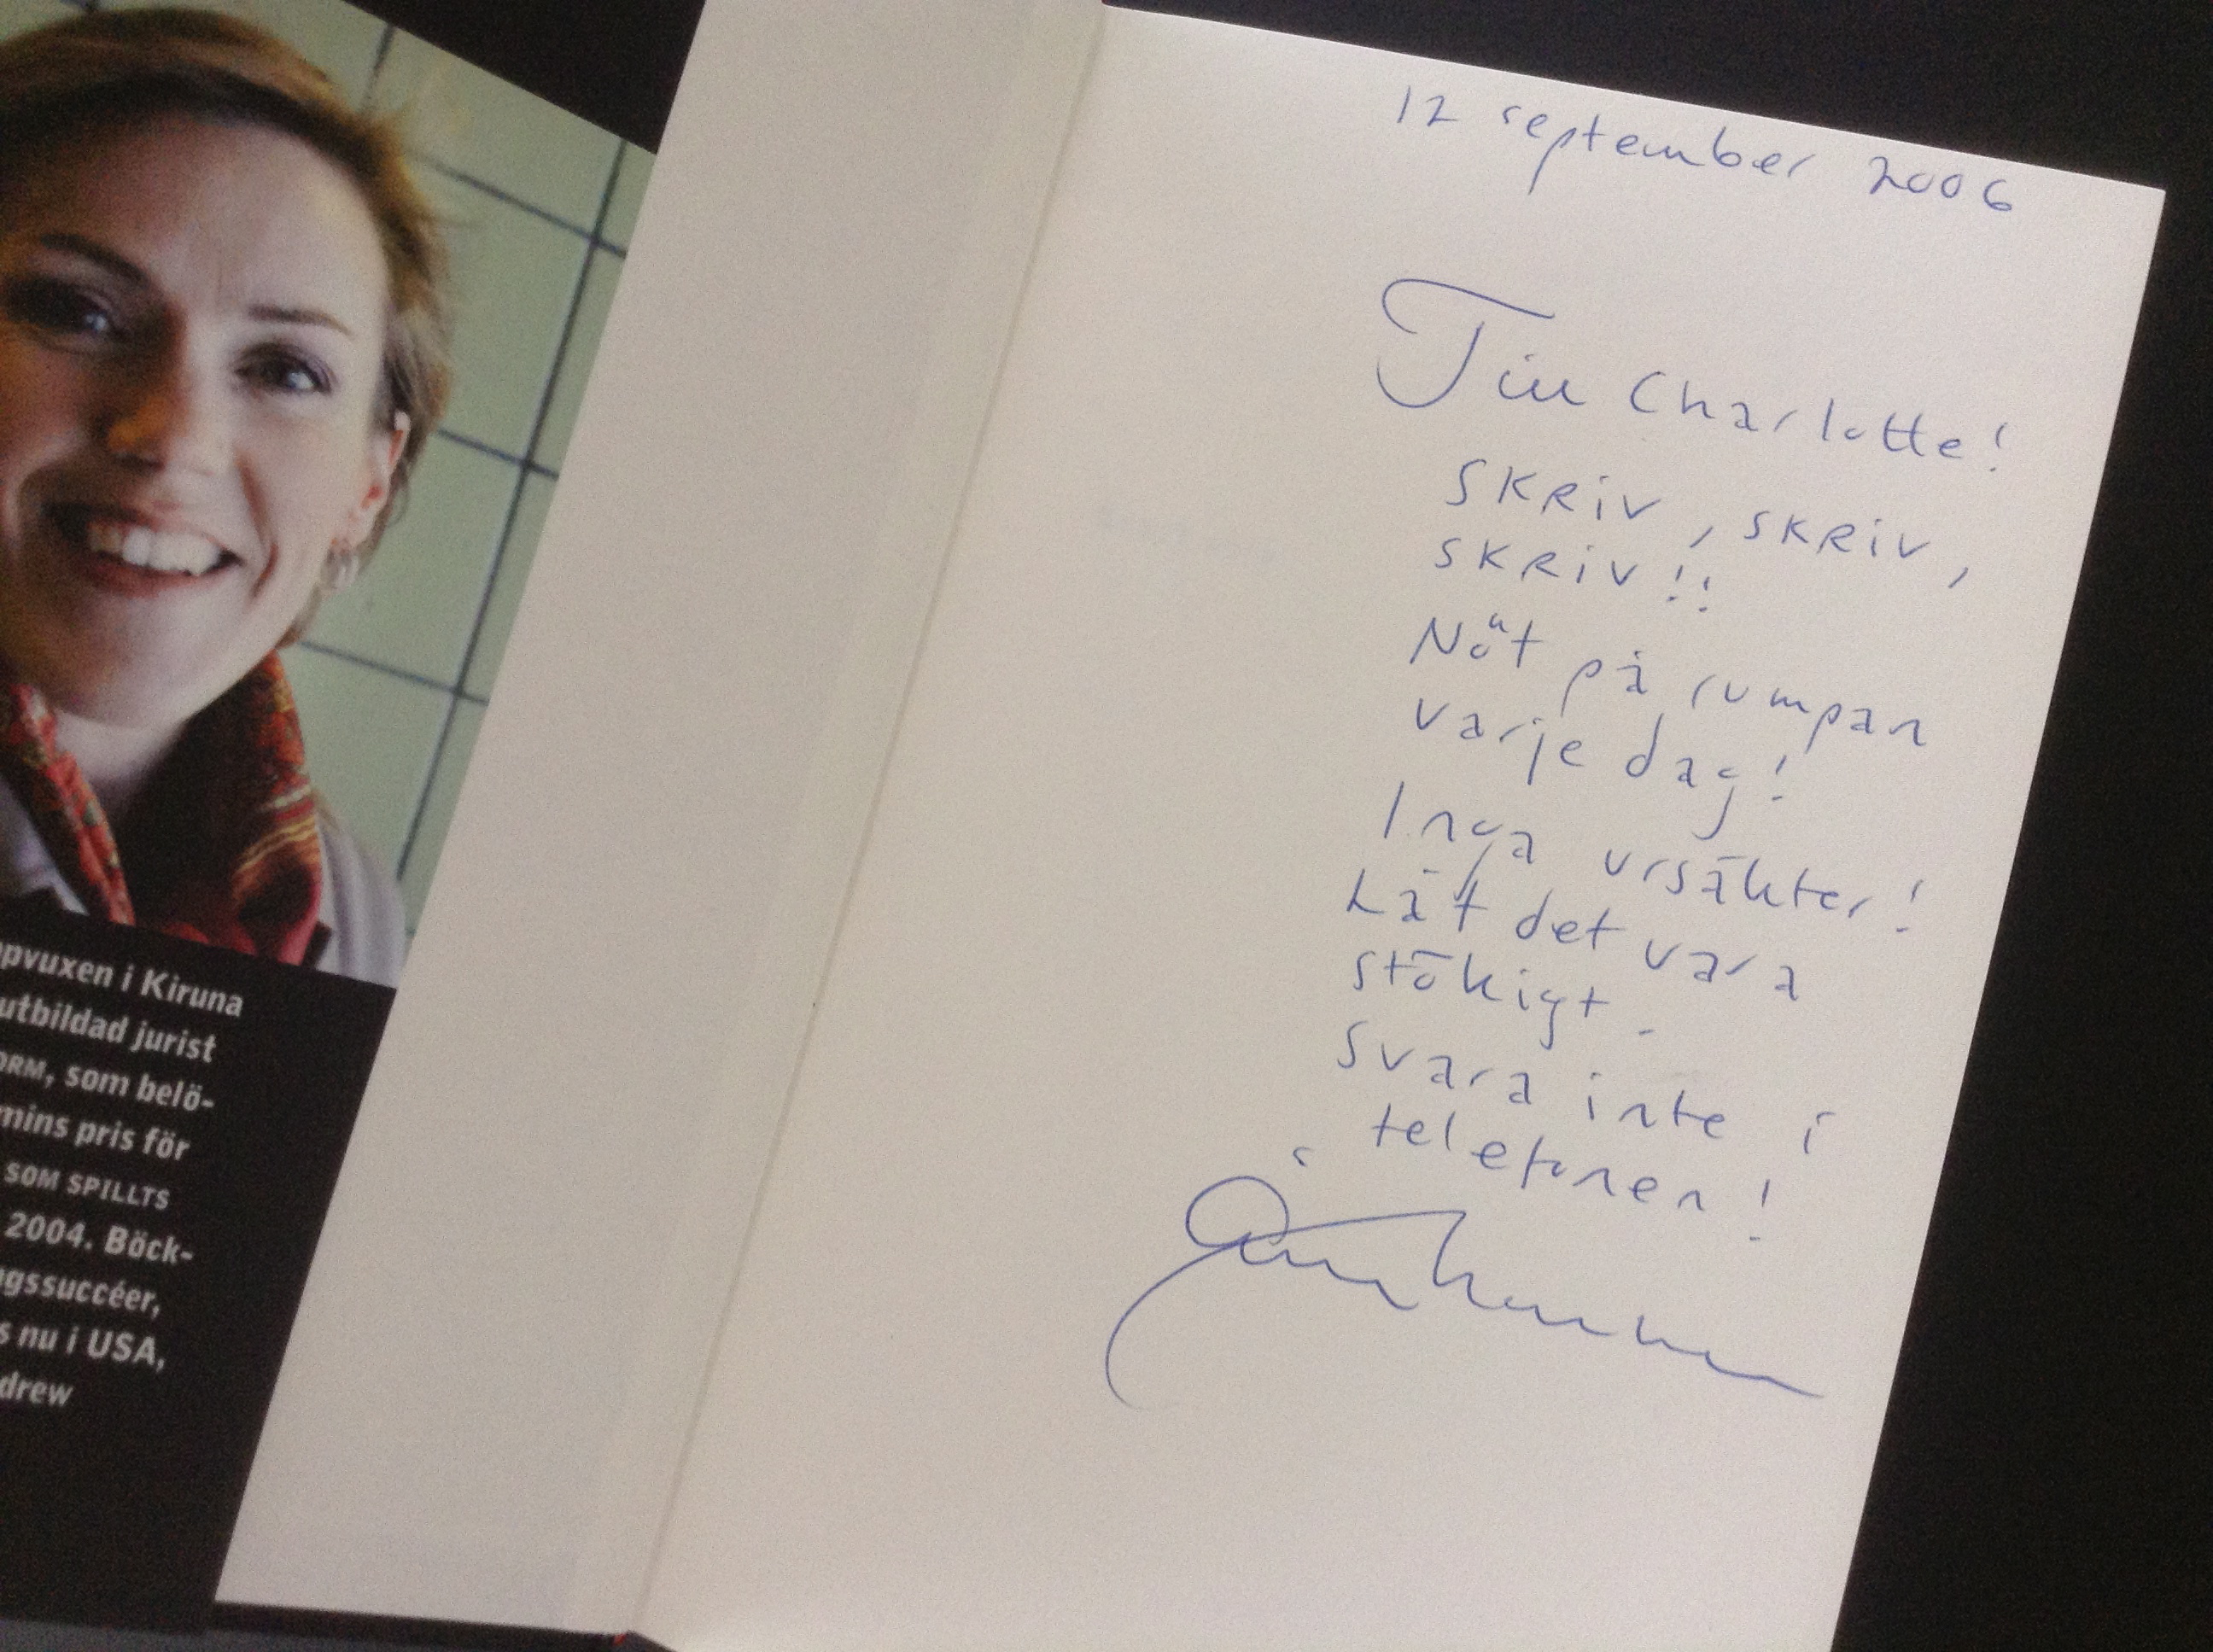 pvuxen i Kiruna
utbildad jurist
ORM, som belö-
mins pris för
SOM SPILLTS
2004. Böck-
gssuccéer,
s nu i USA,
drew
12 september 2006
Till Charlotte!
SKRIV, SKRIV,
SKRIV!!
Nöt på rumpan
varje dag!
Inga ursäkter!
Låt det vara
stökigt.
Svara inte i
telefonen!